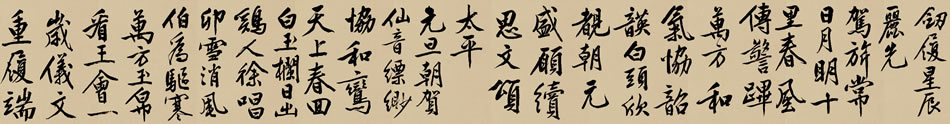 劔履星辰
麗先
駕旂常
日月明十
里春風
傳警蹕
萬方和
氣協韶
韺白頭欣
覩朝元
盛願續
思文頌
太平
元旦朝賀
仙音縹緲
協和鸞
天上春回
白玉欄日出
鷄人徐唱
卯雪消風
伯為驅寒
萬方玉帛
看王會一
歲儀文
重履端